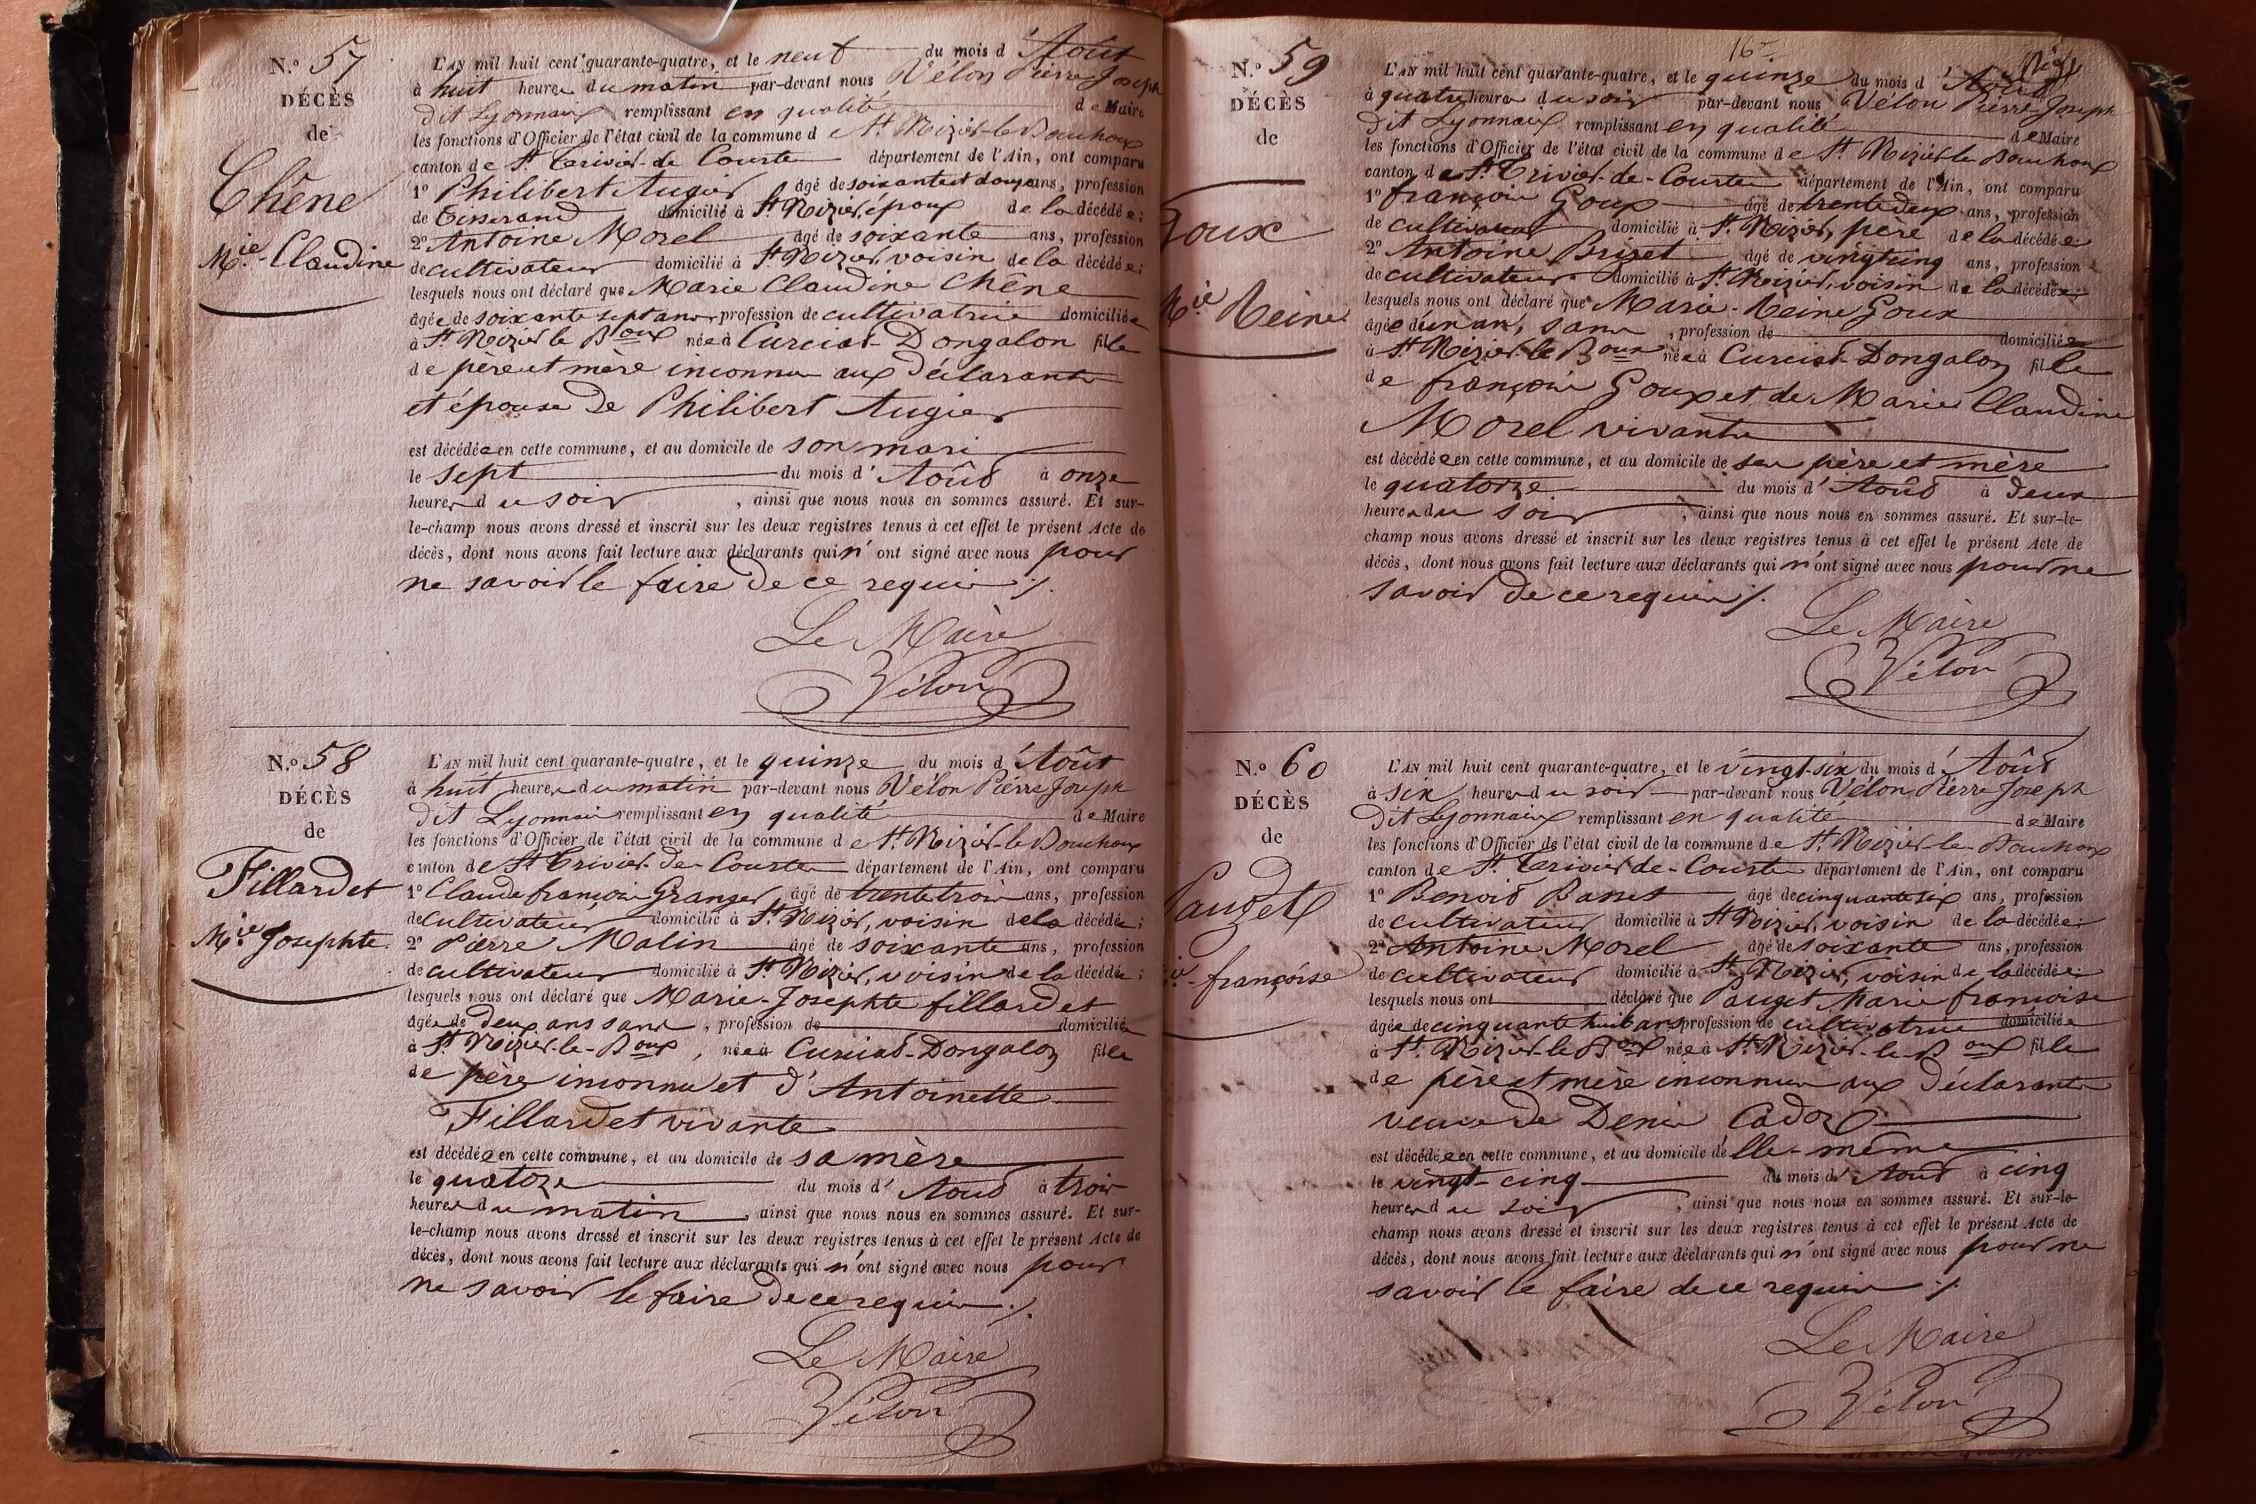 N.o 57
DÉCÈS
de
Chêne
Mie Claudine
L'AN mil huit cent quarante-quatre, et le neuf du mois d'Août
à huit heures du matin par-devant nous Vélon Pierre Joseph
dit Lyonnais remplissant en qualité de Maire
les fonctions d'Officier de l'état civil de la commune de St Nizier-le-Bouchoux
canton de St Trivier-de-Courtes département de l'Ain, ont comparu
1o Philibert Augier âgé de soixante et douze ans, profession
de Tisserand domicilié à St Nizier, époux de la décédée;
2o Antoine Morel âgé de soixante ans, profession
de cultivateur domicilié à St Nizier, voisin de la décédée;
lesquels nous ont déclaré que Marie Claudine Chêne
âgée de soixante sept ans profession de cultivatrice domiciliée
à St Nizier le Boux née à Curciat-Dongalon fille
de père et mère inconnus aux déclarants
et épouse de Philibert Augier
est décédée en cette commune, et au domicile de son mari
le sept du mois d'Août à onze
heures du soir, ainsi que nous nous en sommes assuré. Et sur-
le-champ nous avons dressé et inscrit sur les deux registres tenus à cet effet le présent Acte de
décès, dont nous avons fait lecture aux déclarants qui n'ont signé avec nous pour
ne savoir le faire de ce requis ./.
Le Maire
Vélon
N.o 58
DÉCÈS
de
Fillardet
Mie Josephte
L'AN mil huit cent quarante-quatre, et le quinze du mois d'Août
à huit heures du matin par-devant nous Vélon Pierre Joseph
dit Lyonnais remplissant en qualité de Maire
les fonctions d'Officier de l'état civil de la commune de St Nizier-le-Bouchoux
canton de St Trivier-de-Courtes département de l'Ain, ont comparu
1o Claude françois Granger âgé de trente trois ans, profession
de cultivateur domicilié à St Nizier, voisin de la décédée;
2o Pierre Malin âgé de soixante ans, profession
de cultivateur domicilié à St Nizier, voisin de la décédée;
lesquels nous ont déclaré que Marie-Josephte fillardet
âgée de deux ans sans, profession de domiciliée
à St Nizier-le-Boux, née à Curciat-Dongalon fille
de père inconnu et d'Antoinette
Fillardet vivante
est décédée en cette commune, et au domicile de sa mère
le quatorze du mois d'Août à trois
heures du matin, ainsi que nous nous en sommes assuré. Et sur-
le-champ nous avons dressé et inscrit sur les deux registres tenus à cet effet le présent Acte de
décès, dont nous avons fait lecture aux déclarants qui n'ont signé avec nous pour
ne savoir le faire de ce requis ./.
Le Maire
Vélon
16
N.o 59
DÉCÈS
de
Goux
Mie Reine
L'AN mil huit cent quarante-quatre, et le quinze du mois d'Août
à quatre heures du soir par-devant nous Vélon Pierre Joseph
dit Lyonnais remplissant en qualité de Maire
les fonctions d'Officier de l'état civil de la commune de St Nizier-le-Bouchoux
canton de St Trivier-de-Courtes département de l'Ain, ont comparu
1o françois Goux âgé de trente deux ans, profession
de cultivateur domicilié à St Nizier, père de la décédée;
2o Antoine Briset âgé de vingt cinq ans, profession
de cultivateur domicilié à St Nizier, voisin de la décédée;
lesquels nous ont déclaré que Marie-Reine Goux
âgée d'un an, sans, profession de domiciliée
à St Nizier-le-Boux née à Curciat-Dongalon fille
de françois Goux et de Marie Claudine
Morel vivants
est décédée en cette commune, et au domicile de ses père et mère
le quatorze du mois d'Août à deux
heures du soir, ainsi que nous nous en sommes assuré. Et sur-le-
champ nous avons dressé et inscrit sur les deux registres tenus à cet effet le présent Acte de
décès, dont nous avons fait lecture aux déclarants qui n'ont signé avec nous pour ne
savoir de ce requis ./.
Le Maire
Vélon
N.o 60
DÉCÈS
de
Pauget
ie françoise
L'AN mil huit cent quarante-quatre, et le vingt-six du mois d'Août
à six heures du soir par-devant nous Vélon Pierre Joseph
dit Lyonnais remplissant en qualité de Maire
les fonctions d'Officier de l'état civil de la commune de St Nizier-le-Bouchoux
canton de St Trivier-de-Courtes département de l'Ain, ont comparu
1o Benoit Basset âgé de cinquante six ans, profession
de cultivateur domicilié à St Nizier, voisin de la décédée;
2o Antoine Morel âgé de soixante ans, profession
de cultivateur domicilié à St Nizier, voisin de la décédée;
lesquels nous ont déclaré que Pauget Marie françoise
âgée de cinquante huit ans profession de cultivatrice domiciliée
à St Nizier-le-Boux née à St Nizier-le-Boux fille
de père et mère inconnus aux déclarants
veuve de Denis Cadoz
est décédée en cette commune, et au domicile d'elle-même
le vingt-cinq du mois d'Août à cinq
heures du soir, ainsi que nous nous en sommes assuré. Et sur-le-
champ nous avons dressé et inscrit sur les deux registres tenus à cet effet le présent Acte de
décès, dont nous avons fait lecture aux déclarants qui n'ont signé avec nous pour ne
savoir le faire de ce requis ./.
Le Maire
Vélon